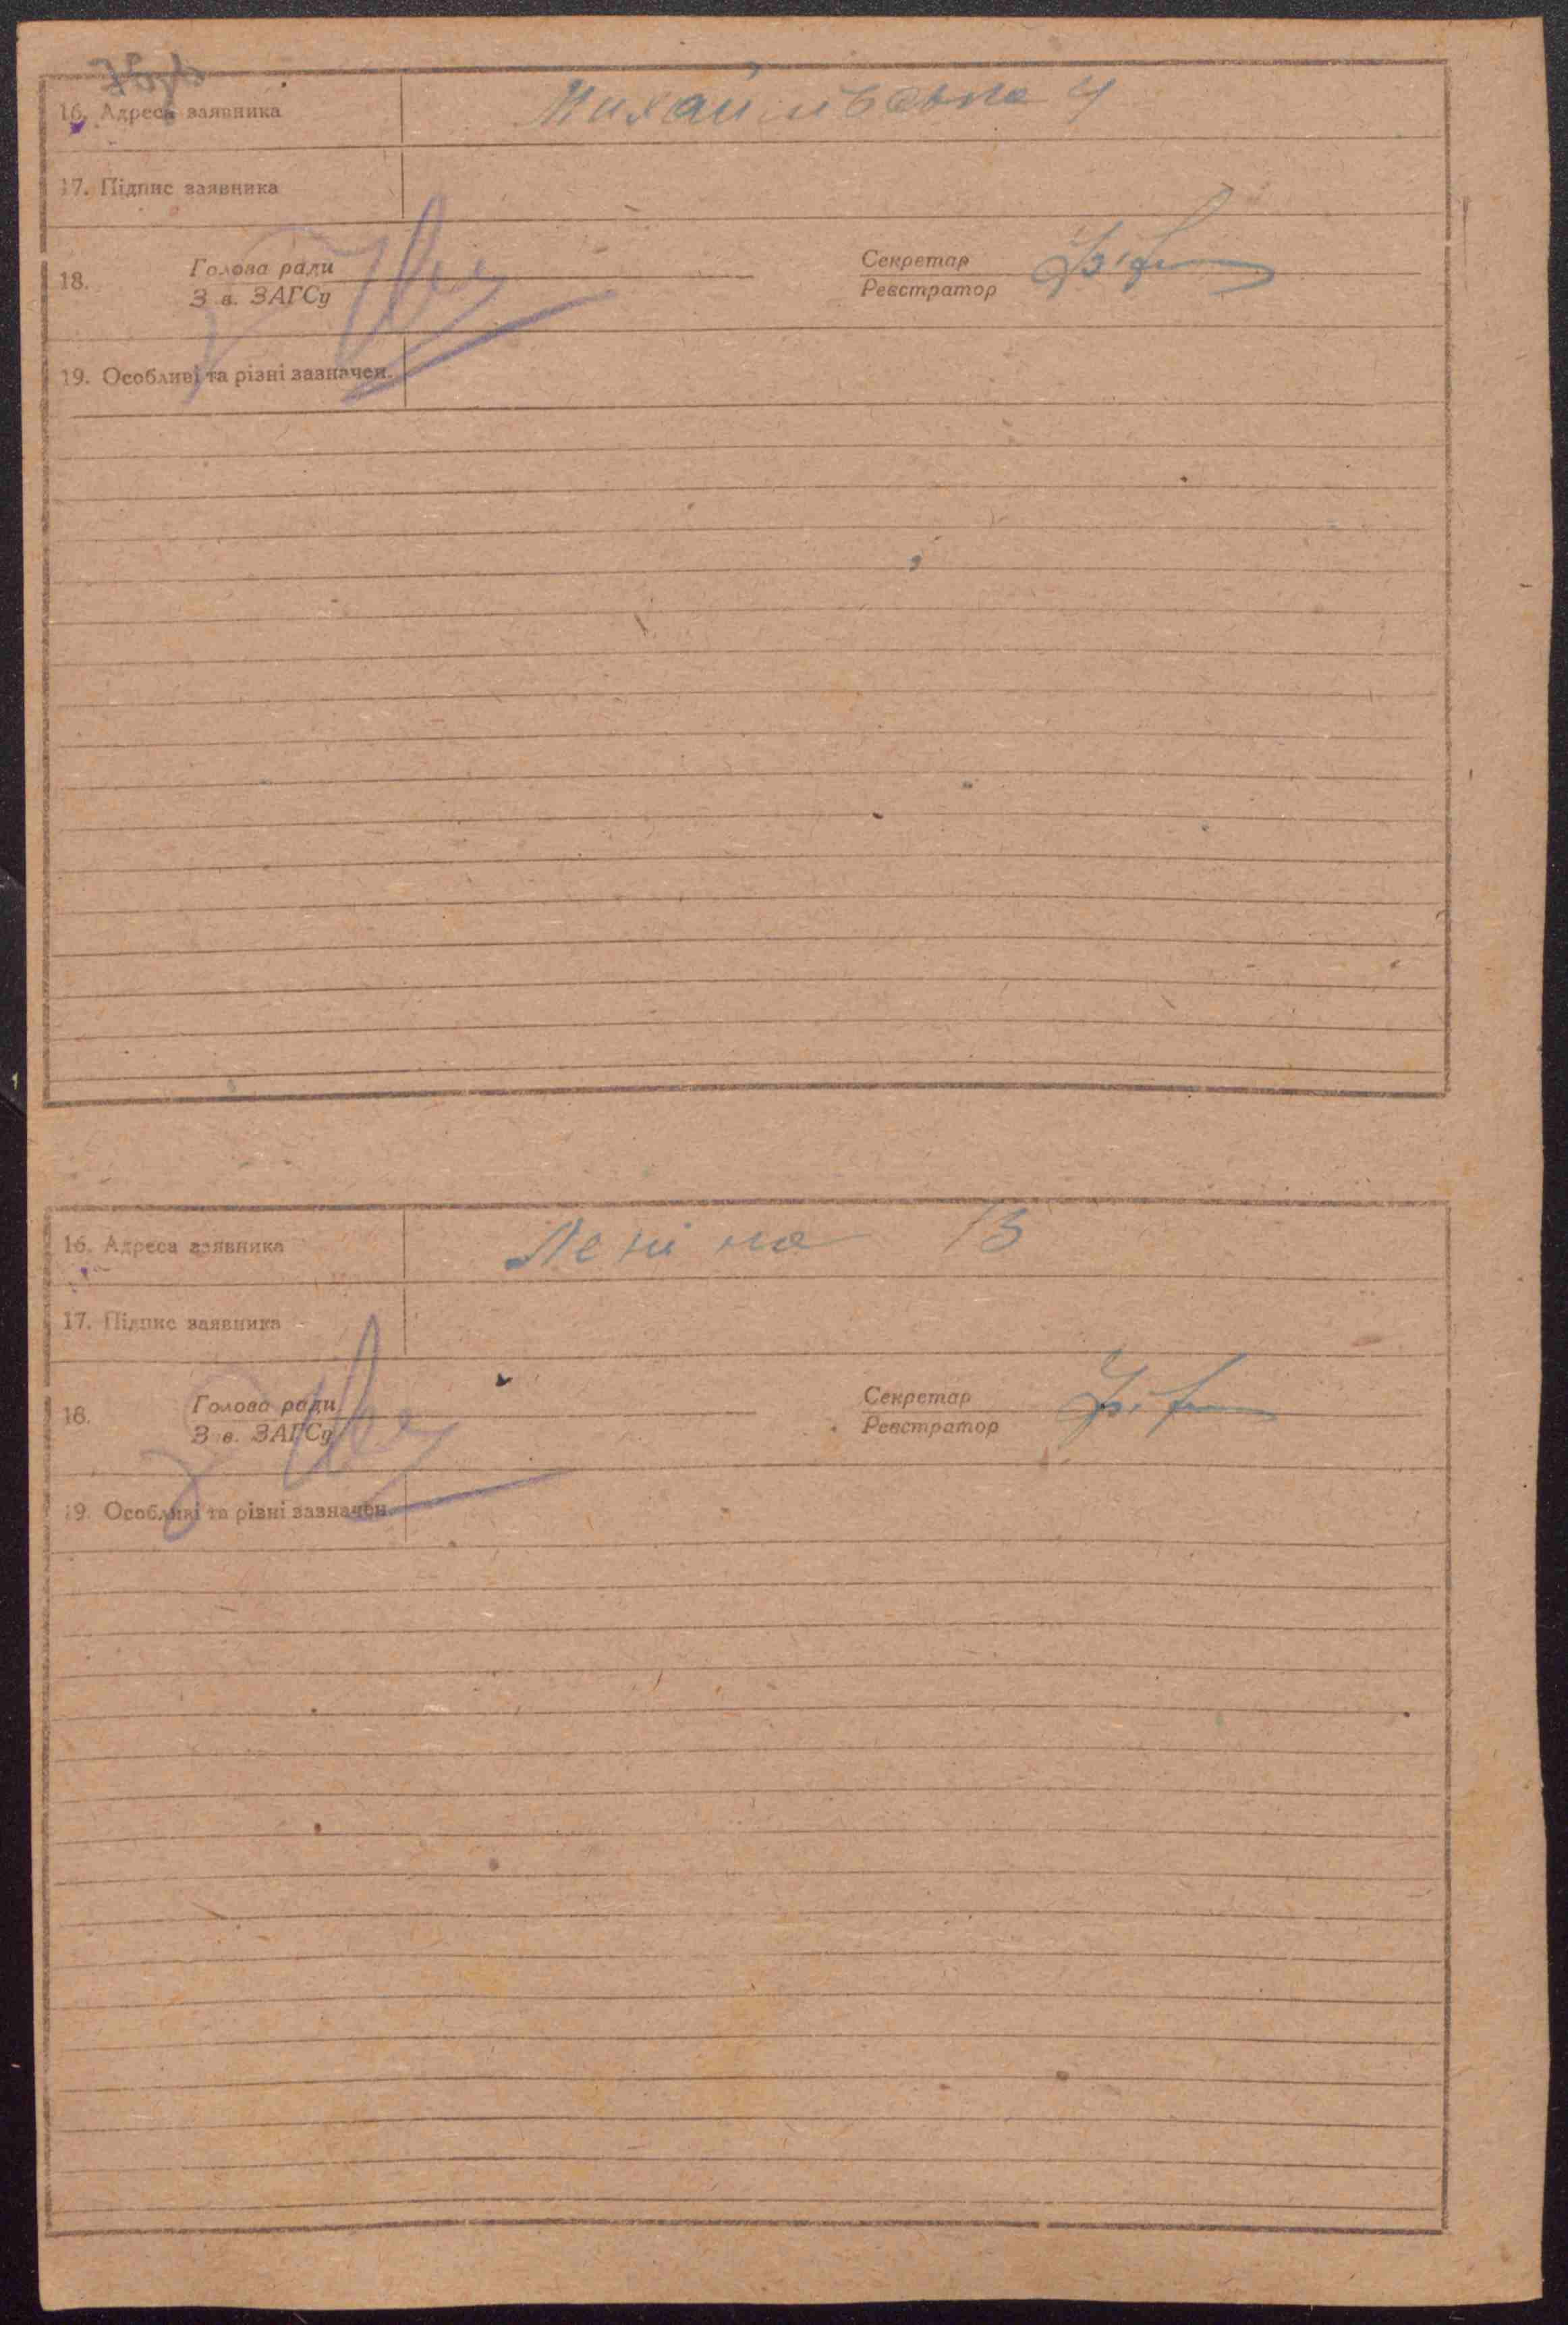 16. Адреса заявника Михайлівська 4
17. Підпис заявника
18. Голова ради Секретар
З в. ЗАГСу Реєстратор
19. Особливі та різні зазначен.
16. Адреса заявника Леніна 13
17. Підпис заявника
18. Голова ради Секретар
З в. ЗАГСу Реєстратор
19. Особливі та різні зазначен.